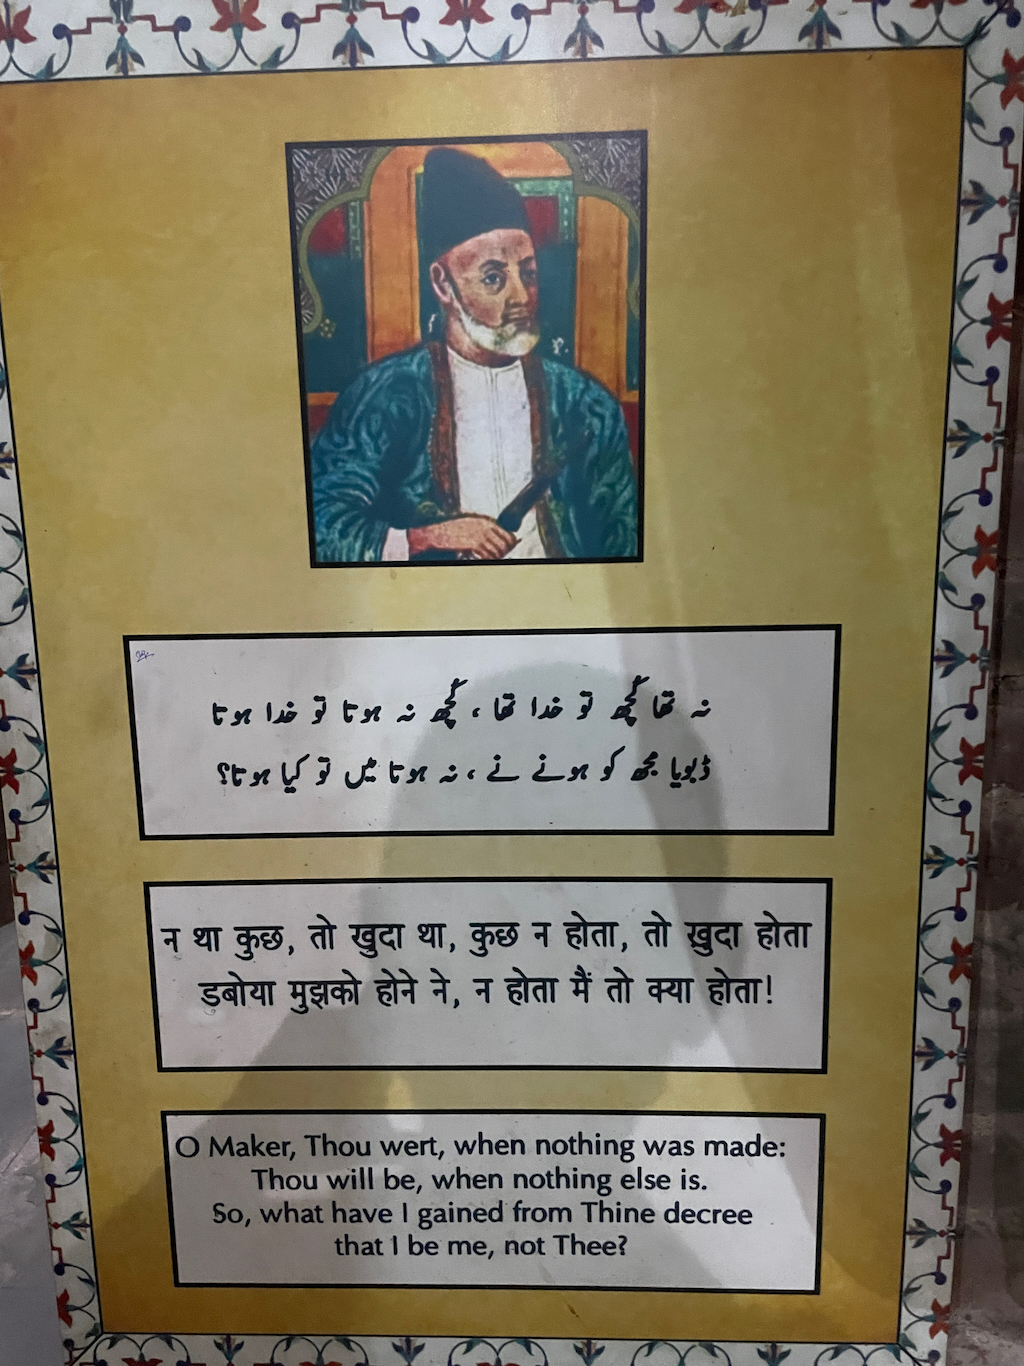 نہ تھا کچھ تو خدا تھا، کچھ نہ ہوتا تو خدا ہوتا
ڈبویا مجھ کو ہونے نے، نہ ہوتا میں تو کیا ہوتا؟
न था कुछ, तो खुदा था, कुछ न होता, तो ख़ुदा होता
डुबोया मुझको होने ने, न होता मैं तो क्या होता!
O Maker, Thou wert, when nothing was made:
Thou will be, when nothing else is.
So, what have I gained from Thine decree
that I be me, not Thee?